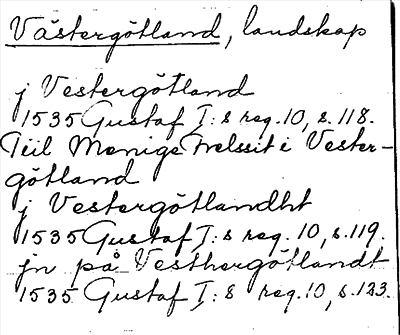 Västergötland, landskap
j Vestergötland
1535 Gustaf I:s reg. 10, s. 118.
Till Menige Frelssit i Vester-
götland
j Vestergötlandht
1535 Gustaf I:s reg. 10, s. 119.
jn på Vesthergötlandt
1535 Gustaf I:s reg. 10, s. 123.